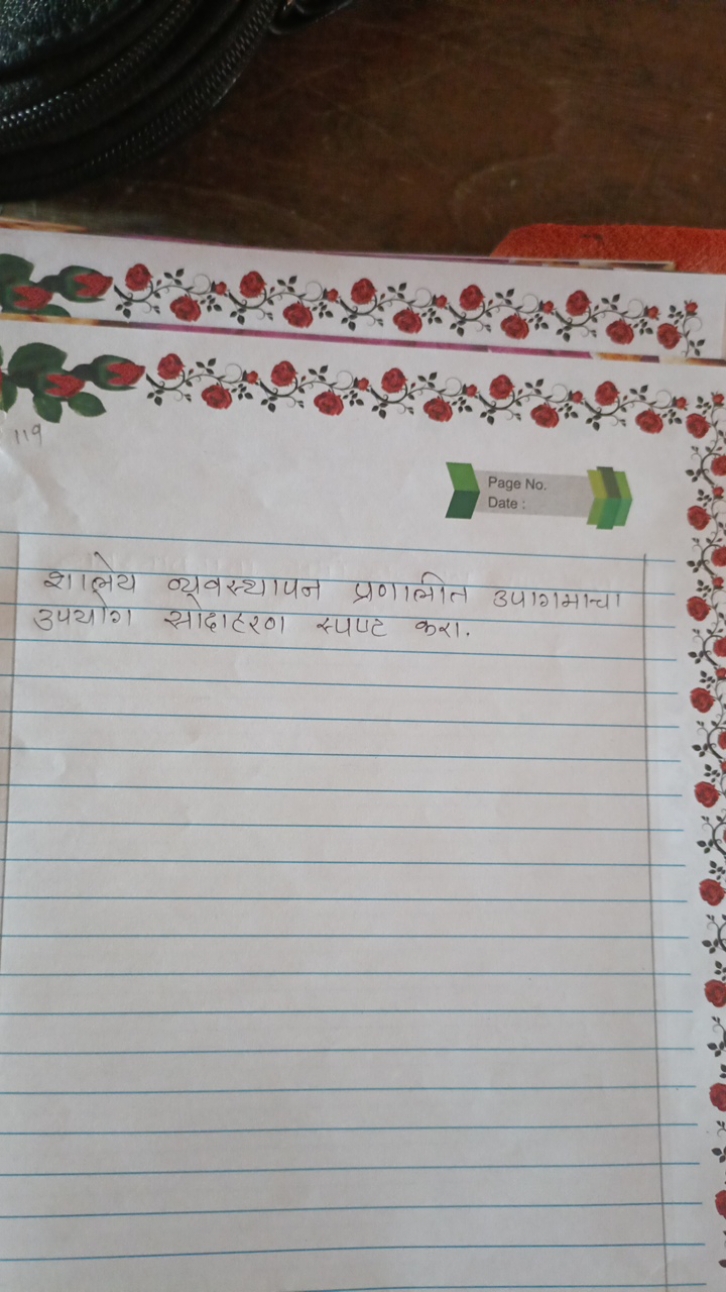 119
Page No.
Date :
शालेय व्यवस्थापन प्रणालीत उपागमाचा
उपयोग सोदाहरण स्पष्ट करा.